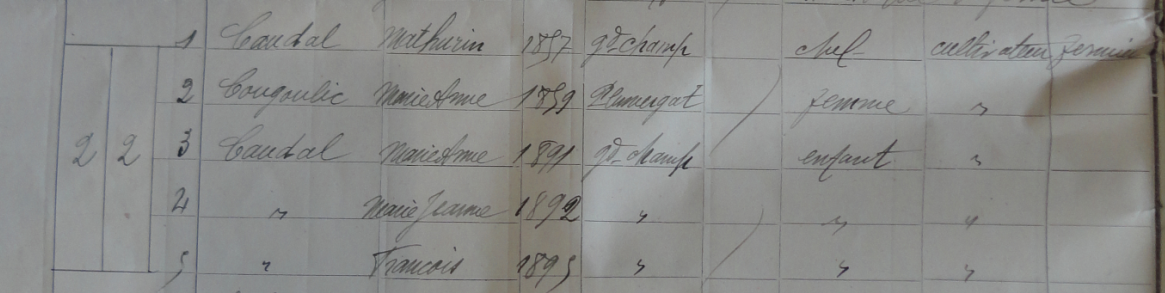 1 Caudal Mathurin 1857 gd champ chef cultivateur fermier
2 Cougoulic Marie Anne 1859 Plumergat femme "
2 2 3 Caudal Marie Anne 1891 gd champ enfant "
4 " Marie Jeanne 1892 " " "
5 " Francois 1895 " " "